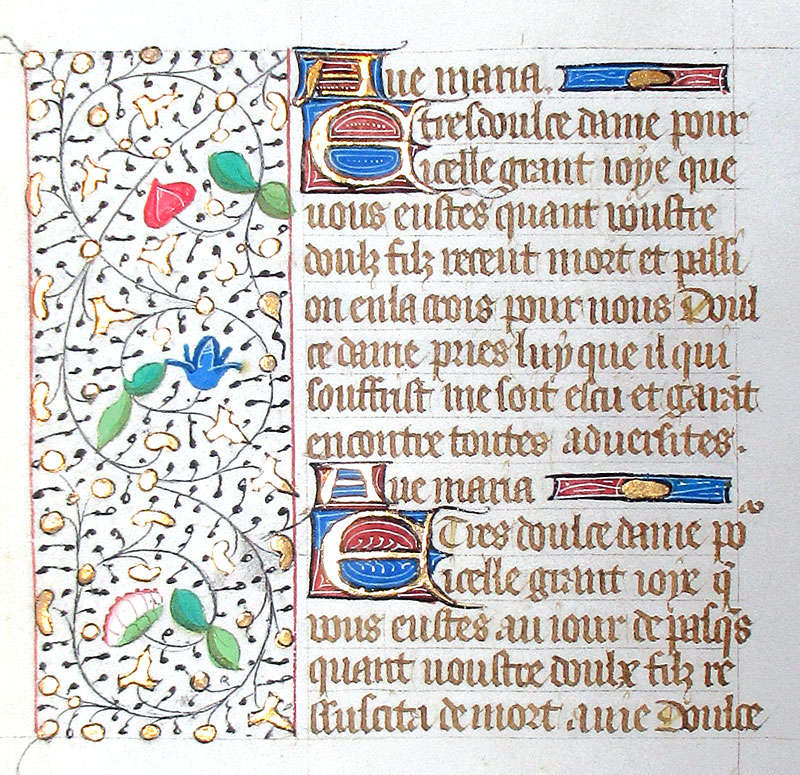 Aue maria.
E tresdoulce dame pour
icelle grant ioye que
uous eustes quant uoustre
doulz filz receut mort et passi
on en la crois pour nous Doul
ce dame pries luy que il qui
souffrist me soit escu et garãt
encontre toutes aduersites.
Aue maria
E Tres doulce dame po
icelle grant ioye q̃
uous eustes au iour de pasq̃s
quant uoustre doulx filz re
ssuscita de mort a uie Doulce